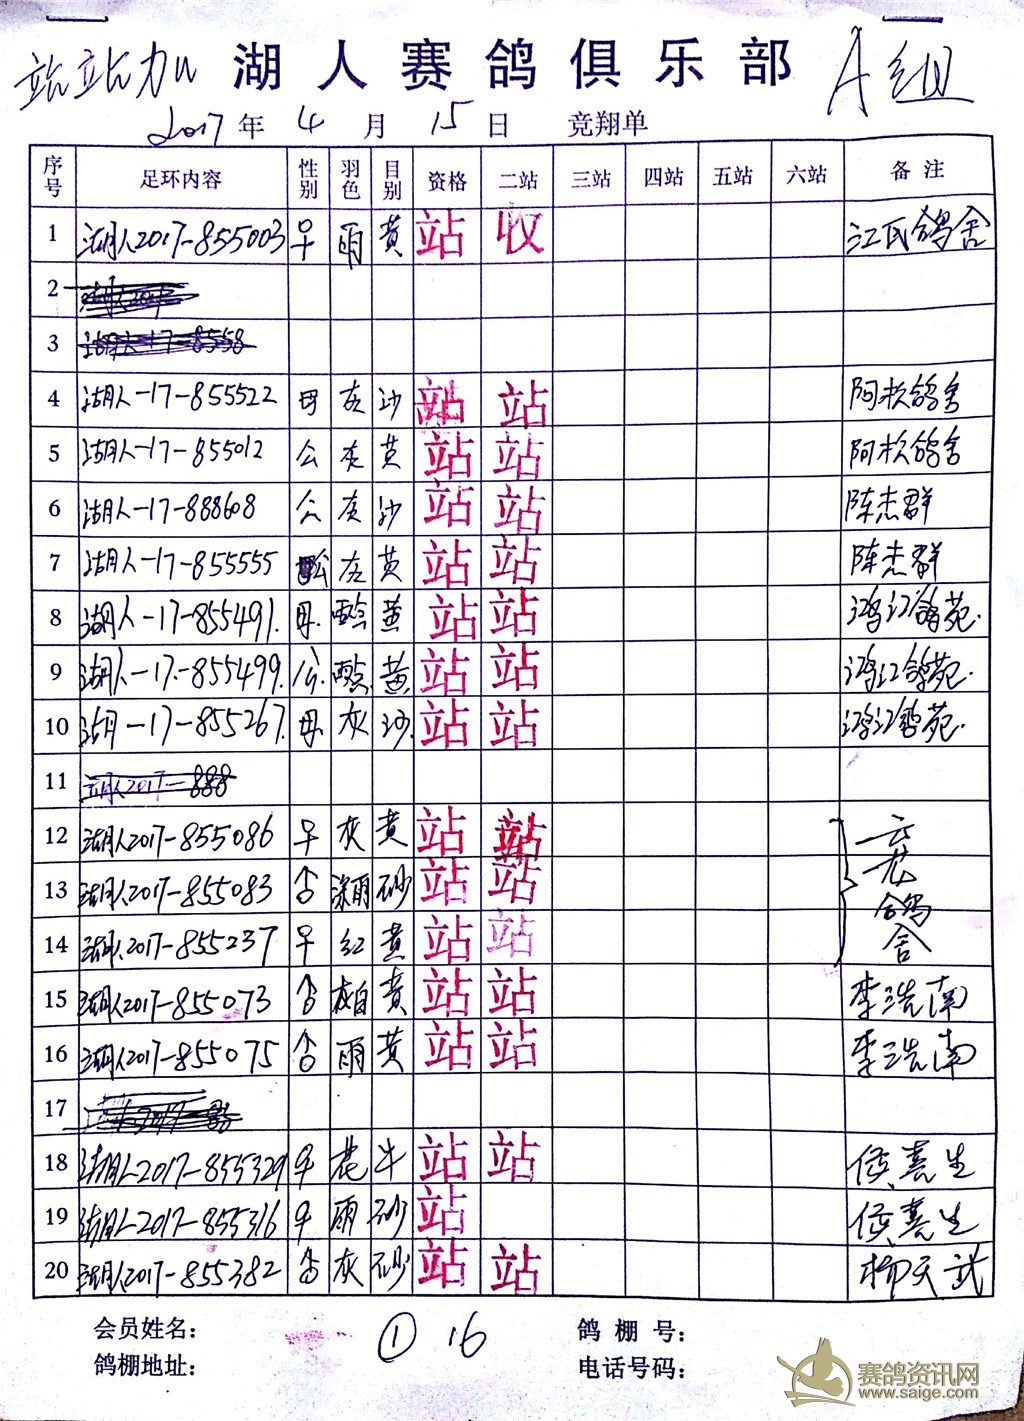 站站加 湖人赛鸽俱乐部 A组
2017年 4 月 15 日 竞翔单
序号 足环内容 性别 羽色 目别 资格 二站 三站 四站 五站 六站 备注
1 湖人2017-855003 早 雨 黄 站 收 江氏鸽舍
2
3
4 湖人-17-855522 母 灰 沙 站 站 阿松鸽舍
5 湖人-17-855012 公 灰 黄 站 站 阿松鸽舍
6 湖人-17-888608 公 灰 沙 站 站 陈杰群
7 湖人-17-855555 公 灰 黄 站 站 陈杰群
8 湖人-17-855491. 母. 黄 站 站 鸿江鸽苑.
9 湖人-17-855499. 公. 黄 站 站 鸿江鸽苑.
10 湖人-17-855267. 母. 灰 沙. 站 站 鸿江鸽苑.
11
12 湖人2017-855086 早 灰 黄 站 站
13 湖人2017-855083 雨 砂 站 站
14 湖人2017-855237 早 红 黄 站 站 鸽舍
15 湖人2017-855073 灰白 黄 站 站 李浩南
16 湖人2017-855075 雨 黄 站 站 李浩南
17
18 湖人2017-855329 花 牛 站 站 侯嘉生
19 湖人2017-855316 雨 砂 站 侯嘉生
20 湖人2017-855382 灰 砂 站 站 杨天武
会员姓名： ① 16 鸽棚号：
鸽棚地址： 电话号码：
赛鸽资讯网
www.saige.com